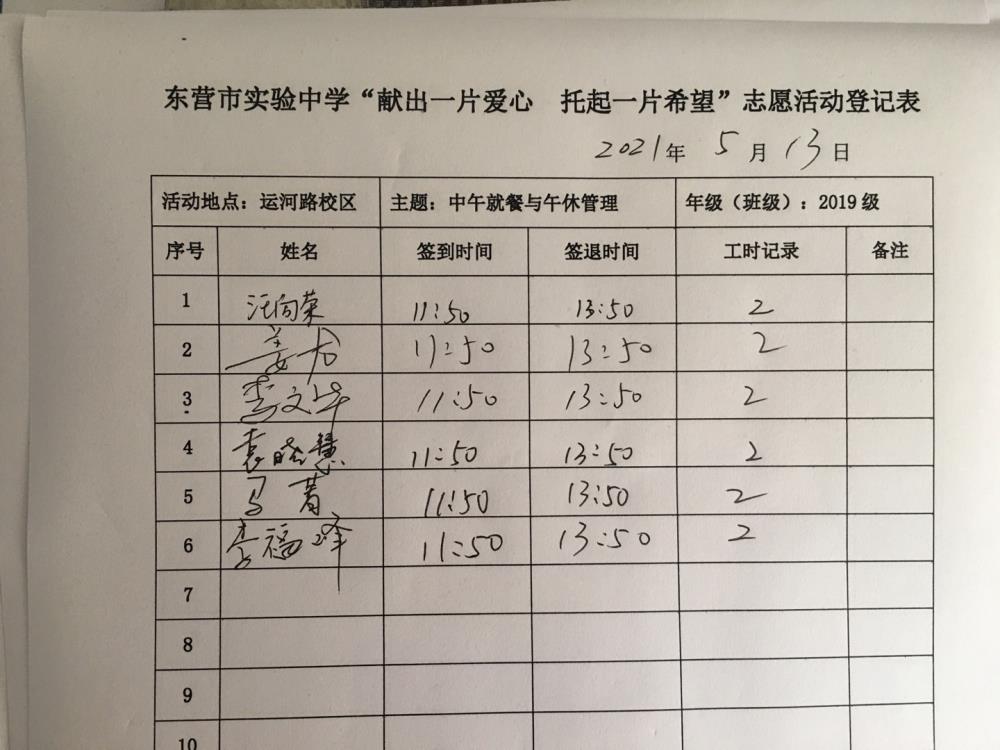 东营市实验中学“献出一片爱心 托起一片希望”志愿活动登记表
2021年 5 月 13 日
活动地点：运河路校区 主题：中午就餐与午休管理 年级（班级）：2019 级
序号 姓名 签到时间 签退时间 工时记录 备注
1 汪向荣 11:50 13:50 2
2 姜龙 11:50 13:50 2
3 李文华 11:50 13:50 2
4 袁晓慧 11:50 13:50 2
5 马菁 11:50 13:50 2
6 李福峰 11:50 13:50 2
7
8
9
10